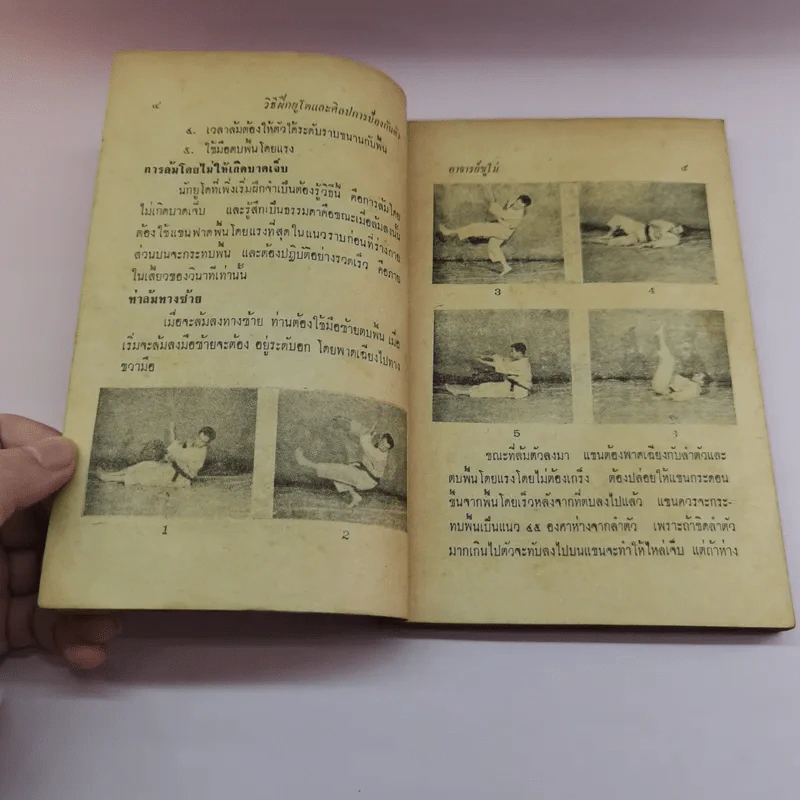 ๔ วิธีฝึกยูโดและศิลปการป้องกันตัว
๔. เวลาล้มต้องให้ตัวได้ระดับราบขนานกับพื้น
๕. ใช้มือตบพื้นโดยแรง
การล้มโดยไม่ให้เกิดบาดเจ็บ
นักยูโดที่เพิ่งเริ่มฝึกจำเป็นต้องรู้วิธีนี้ คือการล้มโดย
ไม่เกิดบาดเจ็บ และรู้สึกเป็นธรรมดาคือขณะเมื่อล้มลงนั้น
ต้องใช้แขนฟาดพื้นโดยแรงที่สุดในแนวราบก่อนที่ร่างกาย
ส่วนบนจะกระทบพื้น และต้องปฏิบัติอย่างรวดเร็ว คือภาย
ในเสี้ยวของวินาทีเท่านั้น
ท่าล้มทางซ้าย
เมื่อจะล้มลงทางซ้าย ท่านต้องใช้มือซ้ายตบพื้น เมื่อ
เริ่มจะล้มลงมือซ้ายจะต้อง อยู่ระดับอก โดยพาดเฉียงไปทาง
ขวามือ
1 2
อาจารย์ชูโม่ ๕
3 4
5 3
ขณะที่ล้มตัวลงมา แขนต้องพาดเฉียงกับลำตัวและ
ตบพื้นโดยแรงโดยไม่ต้องเกร็ง ต้องปล่อยให้แขนกระดอน
ขึ้นจากพื้นโดยเร็วหลังจากที่ตบลงไปแล้ว แขนควรจะกระ-
ทบพื้นเป็นแนว ๔๕ องศาห่างจากลำตัว เพราะถ้าชิดลำตัว
มากเกินไปตัวจะทับลงไปบนแขนจะทำให้ไหล่เจ็บ แต่ถ้าห่าง